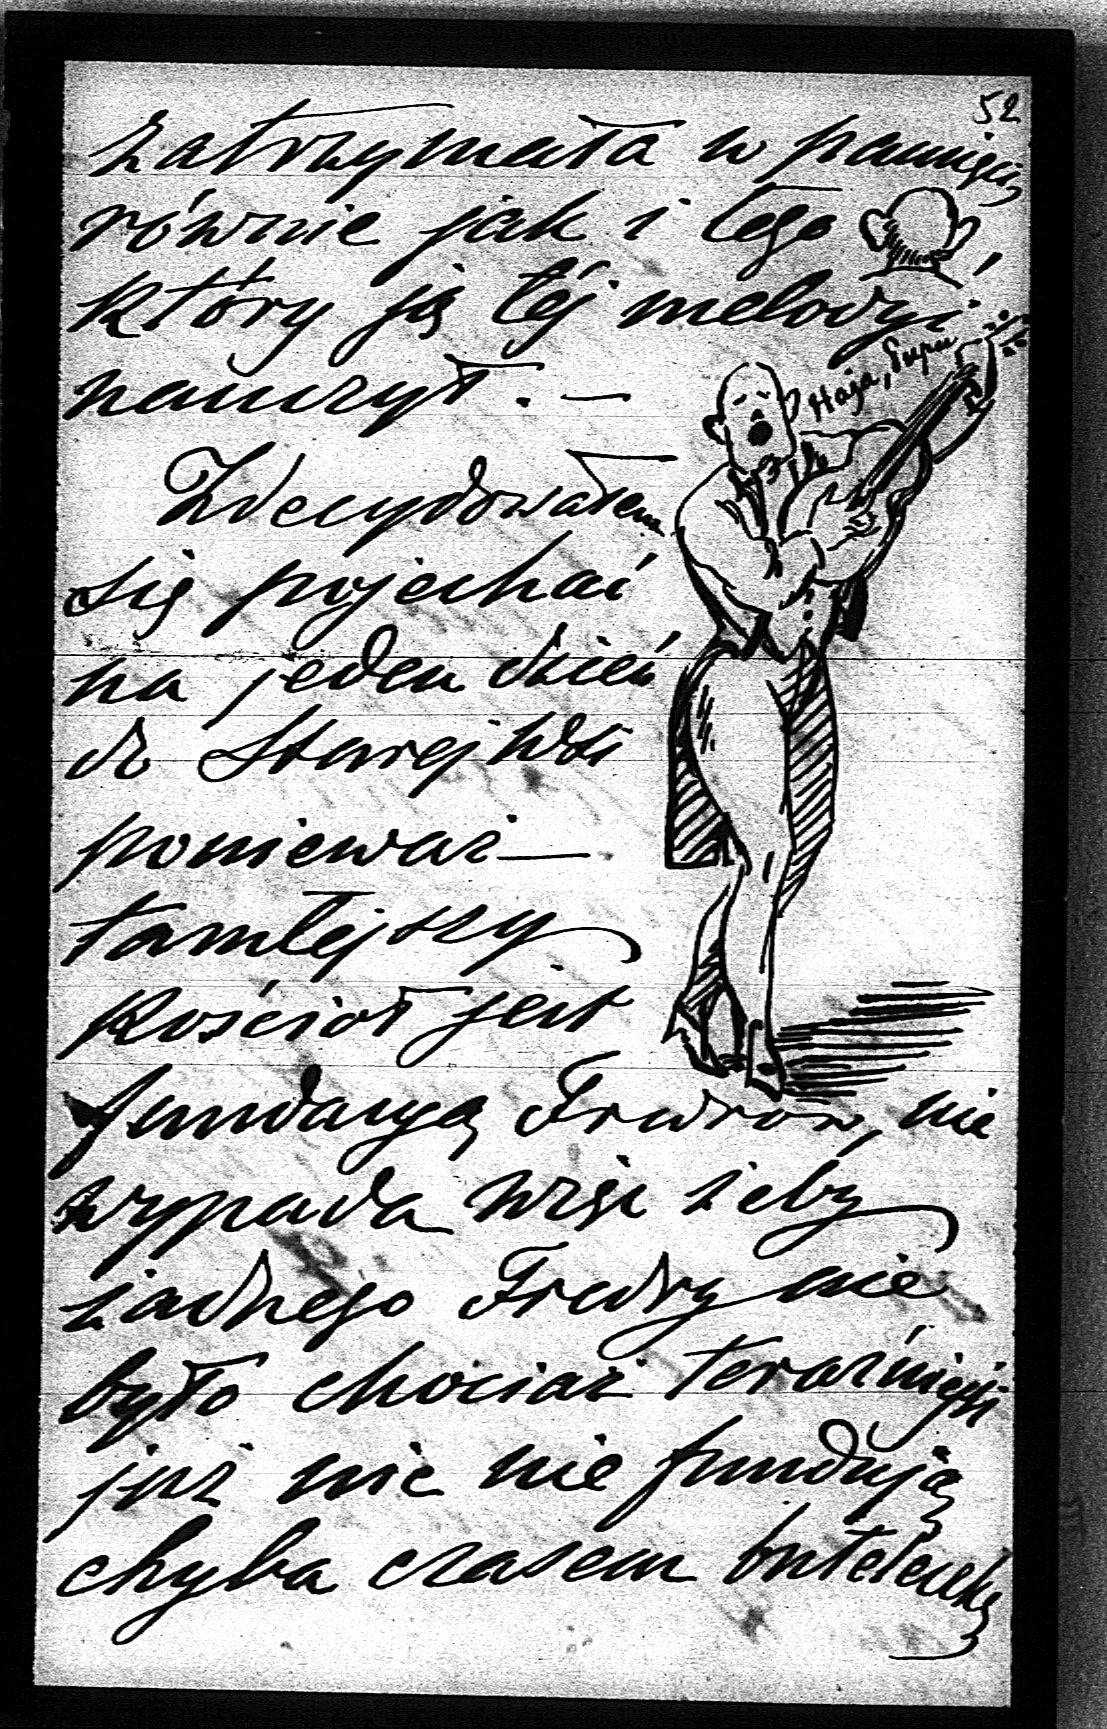 52
zatrzymała w pamięci,
równie jak i tego
który ją téj melodyi
nauczył. —
Haja, lupu
Zdecydowałem
się pojechać
na jeden dzień
do Starejwsi
ponieważ —
tamtejszy
Kościoł jest
fundacyą Fredrów, nie
wypada więc żeby
żadnego Fredry nie
było chociaż teraźniejsi
już nic nie fundują
chyba czasem buteleczkę